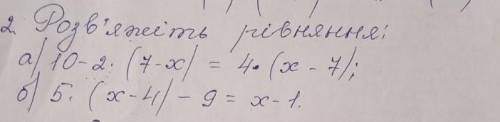 2. Розв'яжіть рівняння:
а) 10-2·(7-x) = 4·(x-7);
б) 5·(x-4)-9=x-1.